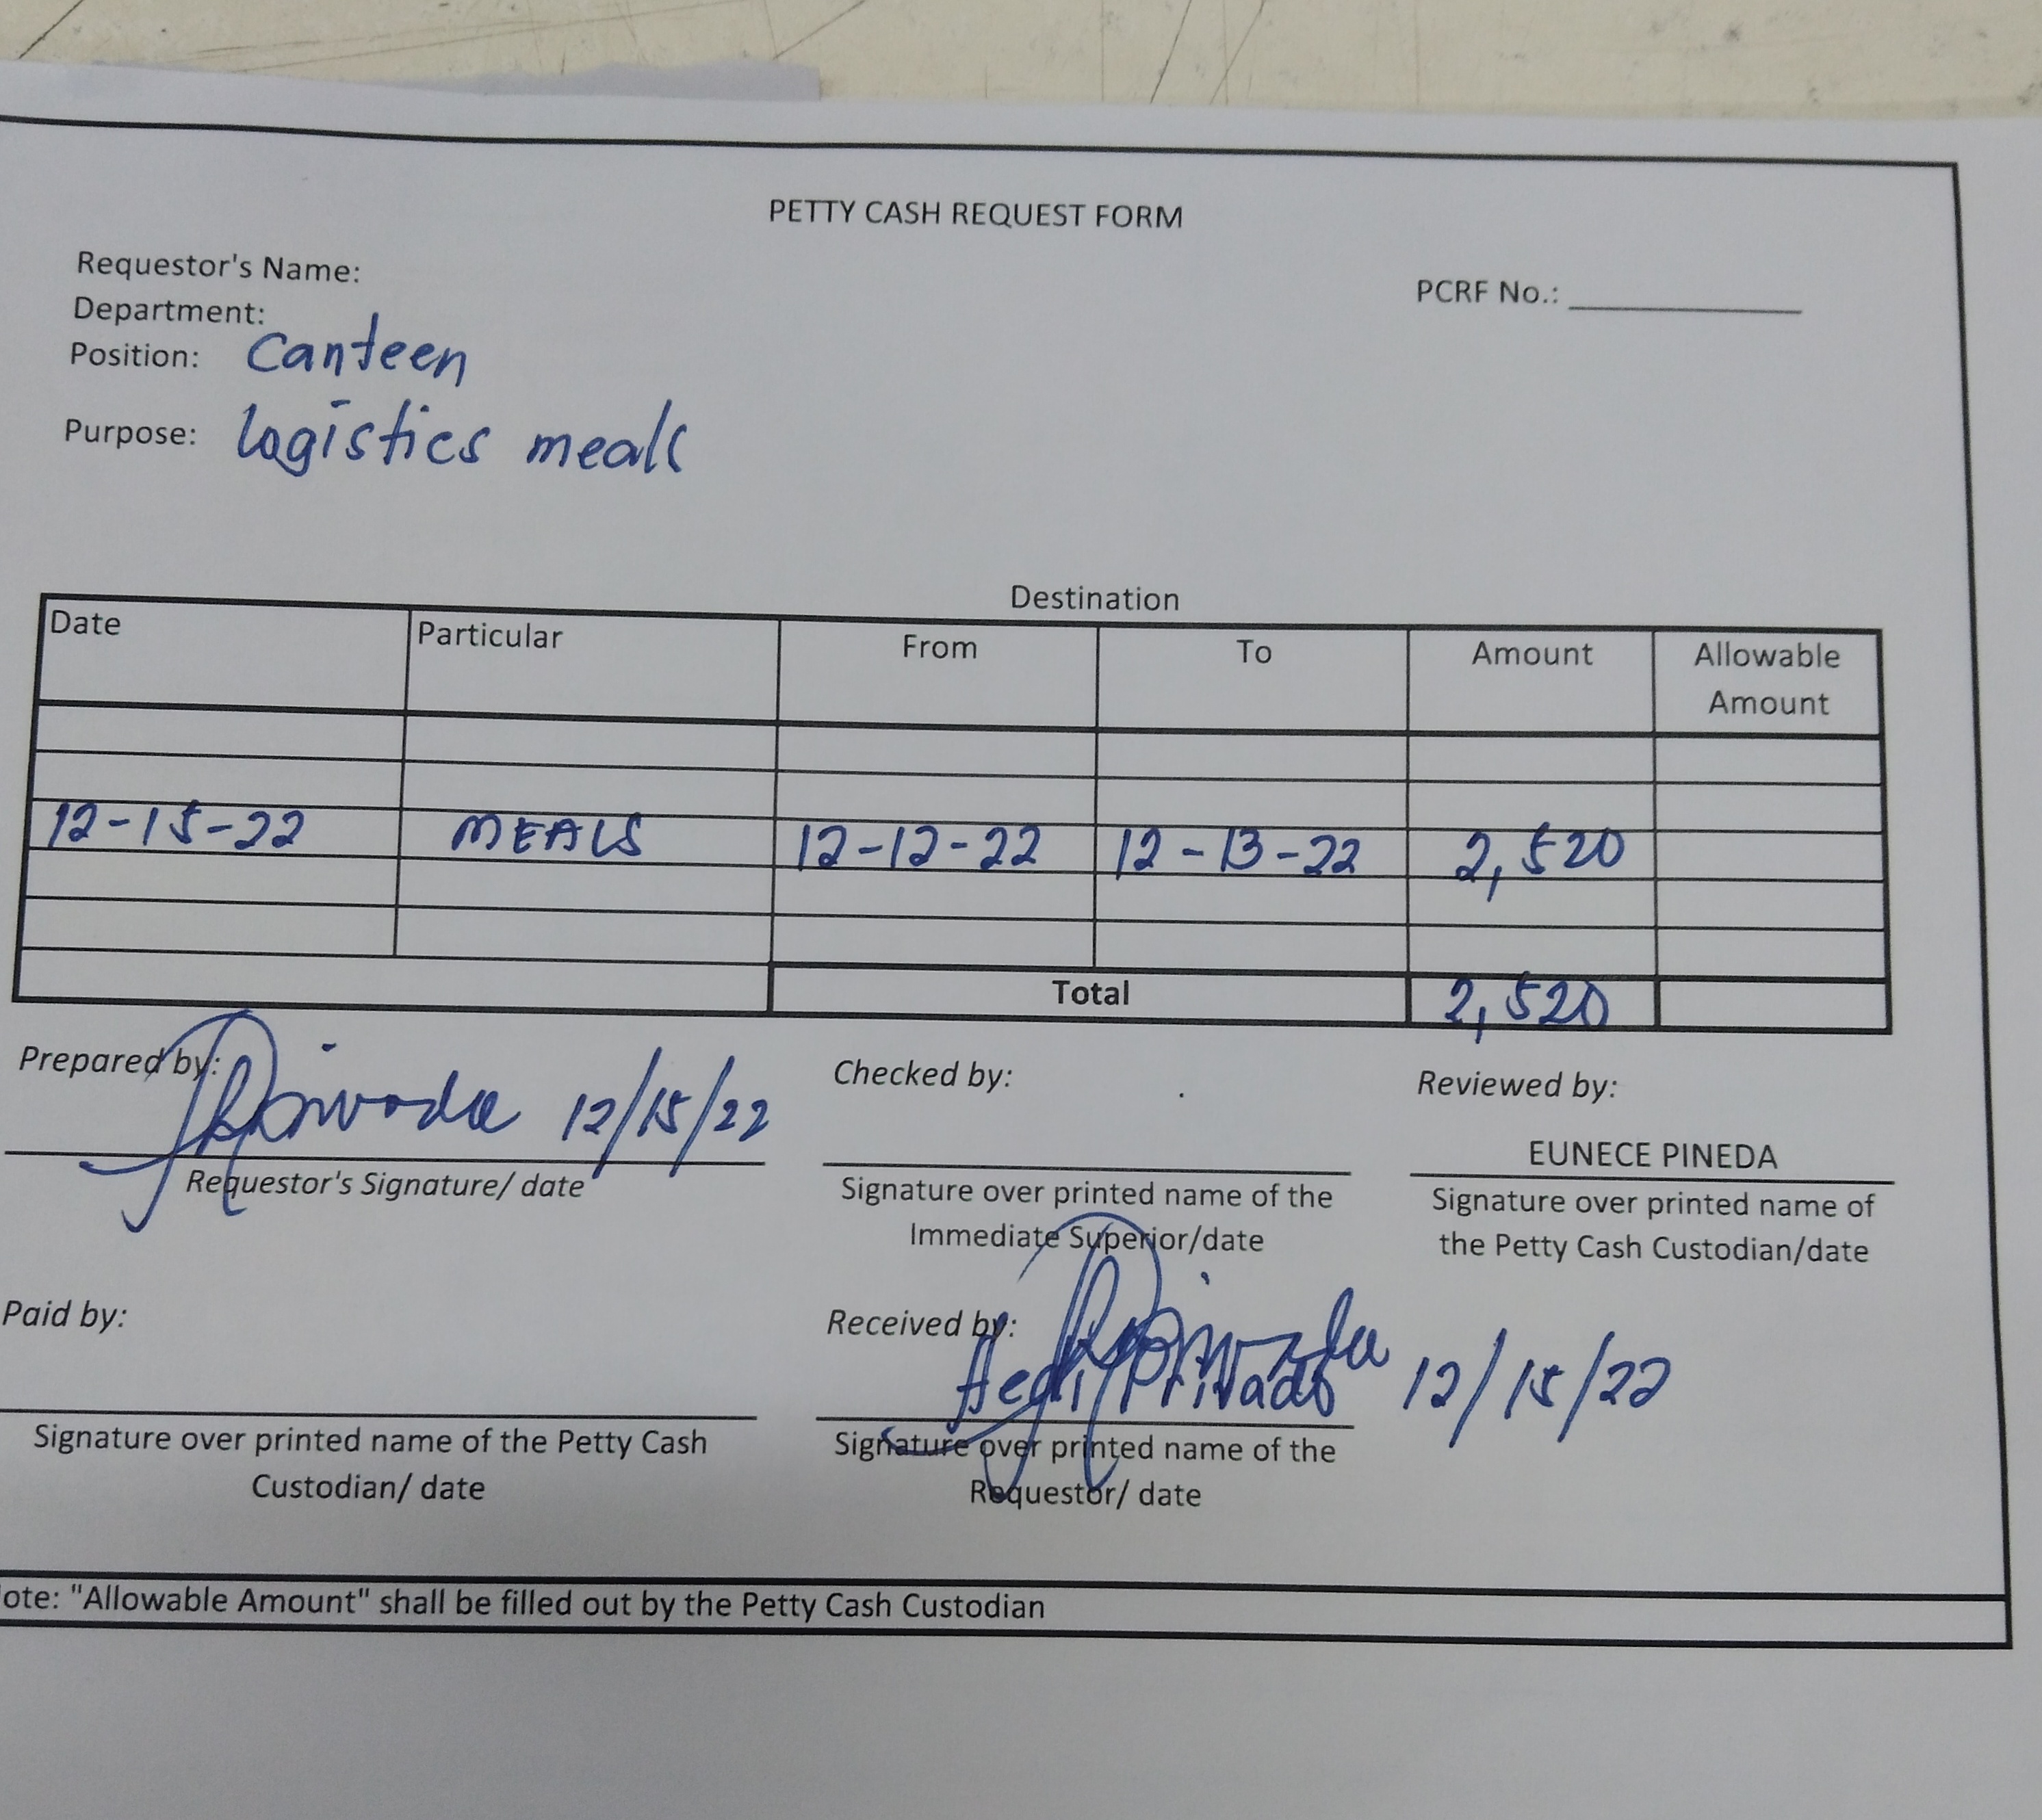 PETTY CASH REQUEST FORM
Requestor's Name:
PCRF No.:
Department:
Position: Canteen
Purpose: logistics meals
Destination
Date Particular From To Amount Allowable Amount
12-15-22 MEALS 12-12-22 12-13-22 2,520
Total 2,520
Prepared by: 12/15/22
Requestor's Signature/ date
Checked by:
Signature over printed name of the
Immediate Superior/date
Reviewed by:
EUNECE PINEDA
Signature over printed name of
the Petty Cash Custodian/date
Paid by:
Signature over printed name of the Petty Cash
Custodian/ date
Received by:
Privado 12/15/22
Signature over printed name of the
Requestor/ date
ote: "Allowable Amount" shall be filled out by the Petty Cash Custodian